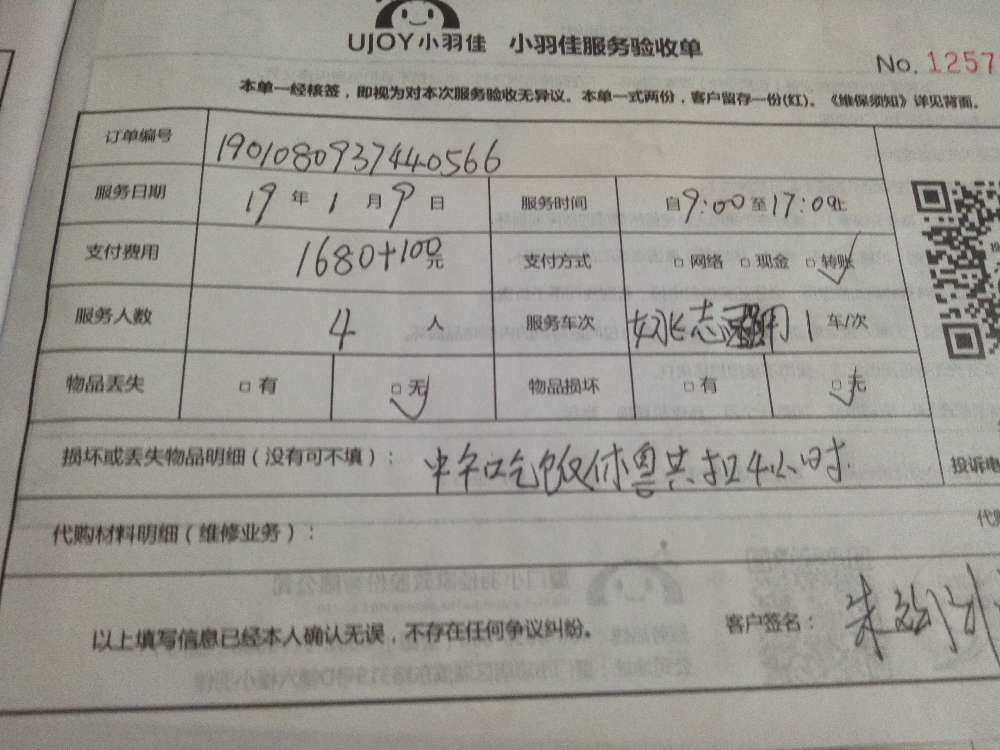 UJOY小羽佳 小羽佳服务验收单
No. 1257
本单一经核签，即视为对本次服务验收无异议。本单一式两份，客户留存一份(红)。《维保须知》详见背面。
订单编号 1901080937440566
服务日期 19 年 1 月 9 日 服务时间 自9:00至17:00止
支付费用 1680+100元 支付方式 □网络 □现金 □转账
服务人数 4 人 服务车次 1 车/次
物品丢失 □有 □无 物品损坏 □有 □无
损坏或丢失物品明细（没有可不填）： 中午吃饭休息共扣4小时
投诉电
代购材料明细（维修业务）：
代购
以上填写信息已经本人确认无误，不存在任何争议纠纷。 客户签名：